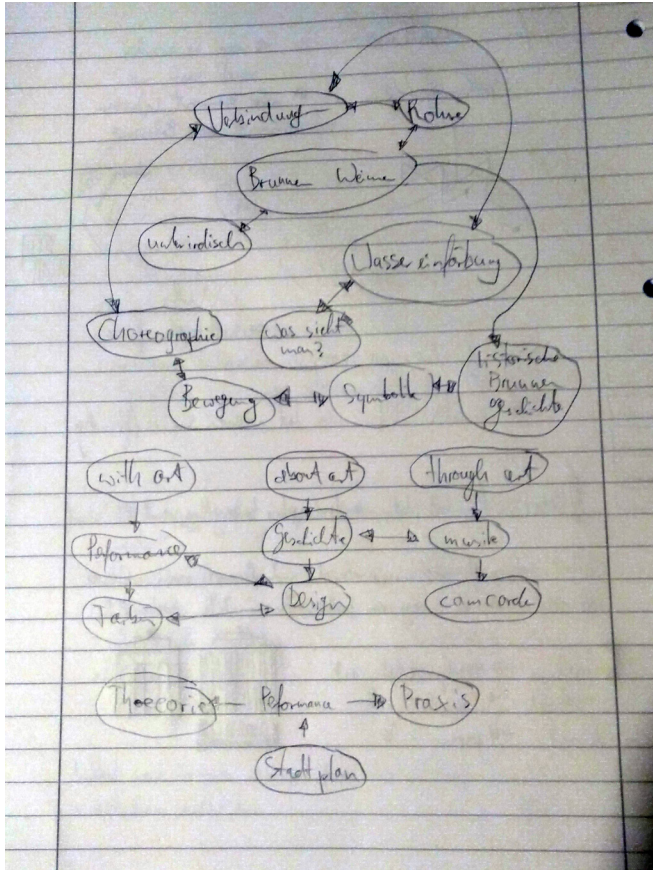 Verbindung Rohre
Brunnen Weimar
unterirdisch
Wassereinförbung
Choreographie Was sieht
man?
Historische
Brunnen
geschichte
Bewegung Symbolik
with art about art through art
Peformance Geschichte musik
Farben Design
Theeorie Peformance Praxis
Stadtplan